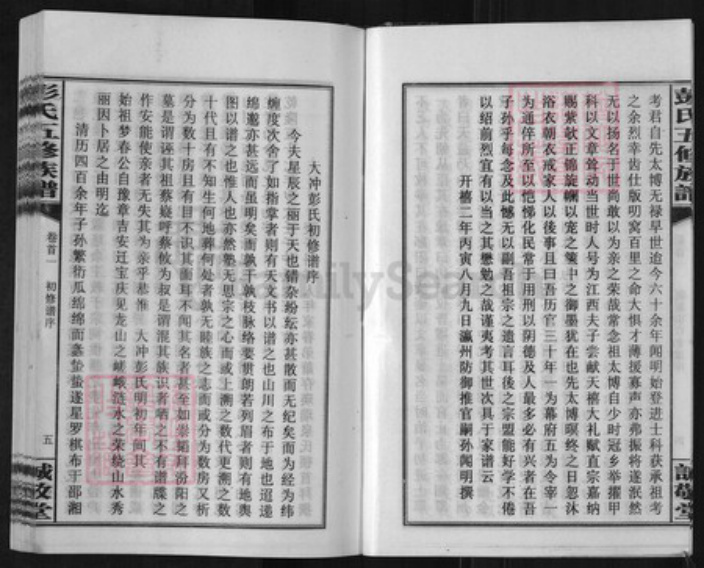 考君自先太博无禄早世迨今六十余年闻明始登进士科获承祖考
之余烈幸齿仕版叨窝百里之命大惧才薄援寡声亦弗振将遂泯然
无以扬名于世尚敢以为亲之荣哉常念祖太博自少时冠乡举擢甲
科以文章耸动当世时人号为江西夫子尝献天禧大礼赋直宗嘉纳
赐紫欹正锦旋輀以宠之箧中之御墨犹在也先太博暝终之日忽沐
浴衣朝衣戒家人以後事且曰吾历官三十年一为幕府五为令宰一
为通倅所至以恺悌化民常于用刑以阴德及人最多必有兴者在吾
子孙乎每念及此憾无以副吾祖宗之遗言耳後之宗盟能好学不倦
以绍前烈宜有以当之其懋勉之哉谨夷考其世次具于家谱云
开禧二年丙寅八月九日瀛州防御推官嗣孙闻明撰
彭氏五修族谱
誠敬堂
大冲彭氏初修谱序
今夫星辰之丽于天也错杂纷纭亦甚散而无纪矣而为经为纬
缠度次舍了如指掌者则有天文书以谱之也山川之布于地也迢递
绵邈亦甚远而虽明矣而孰干孰枝脉络要贯朗若列眉者则有地舆
图以谱之也惟人也亦然塾无思宗之心而或上溯之数代更溯之数
十代且有不知生何地葬何处者孰无睦族之志而或分为数房又析
分为数十房且有目不识其面耳不闻其名者甚至如崇韬拜汾阳之
墓是谓诬其祖蔡嶷呼蔡攸为叔是谓混其族识者哂之不有谱牒之
作安能使亲者无失其为亲乎恭惟 大冲彭氏明初年间其
始祖梦春公自豫章吉安迁宝庆见龙山之嵯峨涟水之荣绕山水秀
丽因卜居之由明迄
清历四百余年子孙繁衍瓜绵绵而螽蛰蛰遂星罗棋布于邵湘
彭氏五修族谱
卷首一 初修谱序
五
誠敬堂
FamilySearch